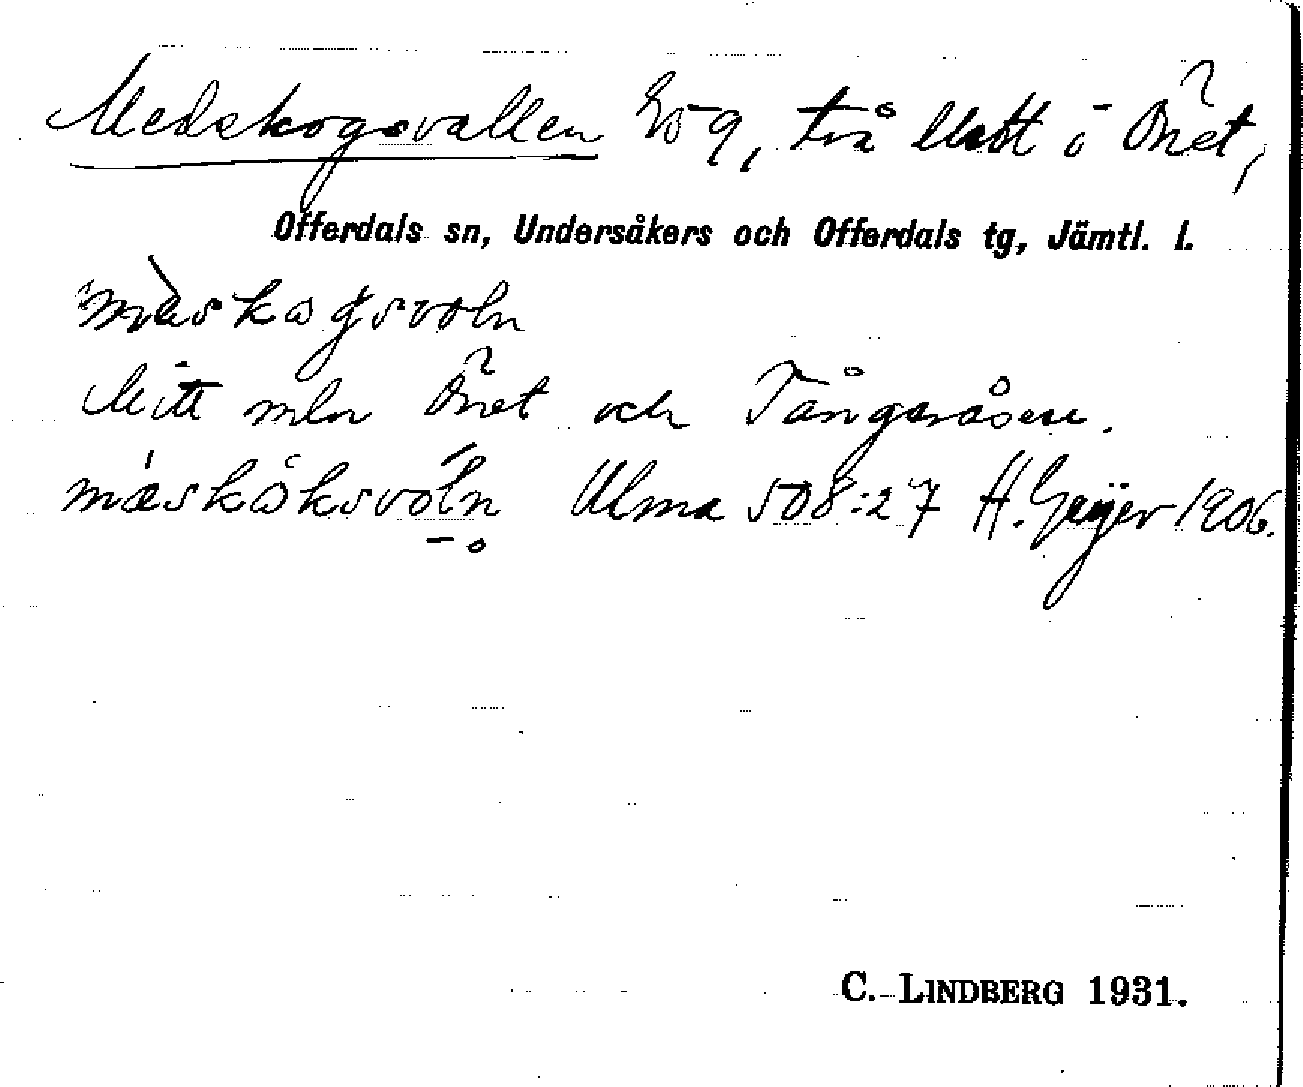 Medskogsvallen två i Önet,
Offerdals sn, Undersåkers och Offerdals tg, Jämtl. l.
mäskogsvoln
Mitt mln Önet och Tångeråsen.
mæskåksvoln Ulma 508:27 H. Geijer 1906.
C. LINDBERG 1931.